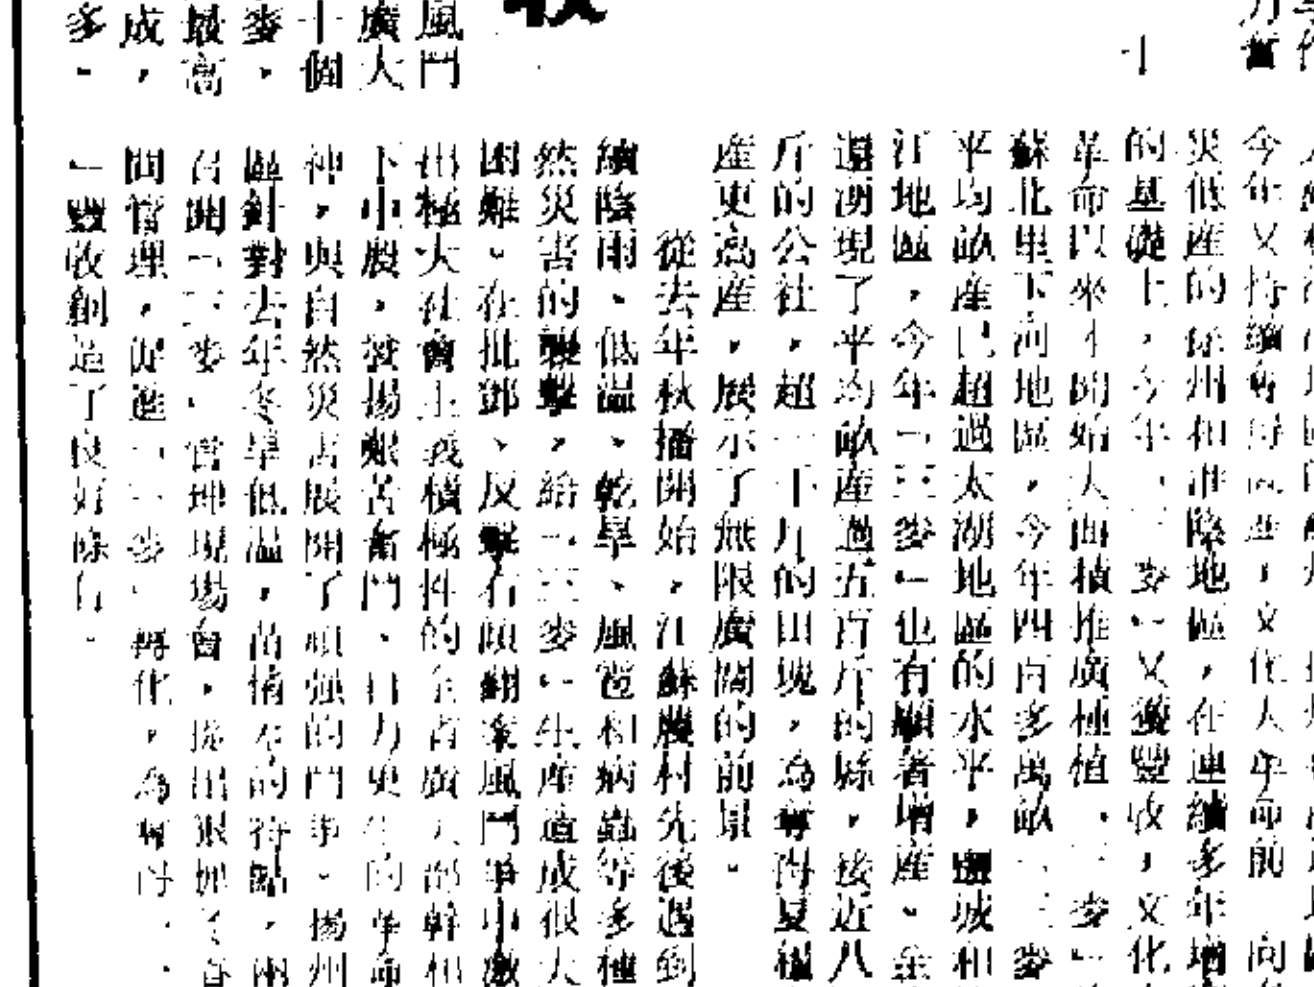 力奮
十
收
風門
廣大
十個
麥，
最高
成，
多。
今年又持續奪得高產，文化大革命前 向
災低產的徐州和淮陰地區，在連續多年增
的基礎上，今年「三麥」又獲豐收，文化
革命以來才開始大面積推廣種植「三麥」
蘇北里下河地區，今年四百多萬畝「三麥
平均畝產已超過太湖地區的水平，鹽城和
江地區，今年「三麥」也有顯著增產。全
還湧現了平均畝產過五百斤的縣，接近八
斤的公社，超一千斤的田塊，為奪得夏糧
產更高產，展示了無限廣闊的前景。
從去年秋播開始，江蘇農村先後遇到
續陰雨、低温、乾旱、風雹和病蟲等多種
然災害的襲擊，給「三麥」生產造成很大
困難。在批鄧、反擊右傾翻案風鬥爭中激
出極大社會主義積極性的全省廣大部幹和
下中農，發揚艱苦奮鬥、自力更生的革命
神，與自然災害展開了頑强的鬥爭。揚州
區針對去年冬旱低温，苗情不的特點，兩
召開「三麥」管理現場會，提出狠抓了春
間管理，促進「三麥」轉化，為奪得
」豐收創造了良好條件。